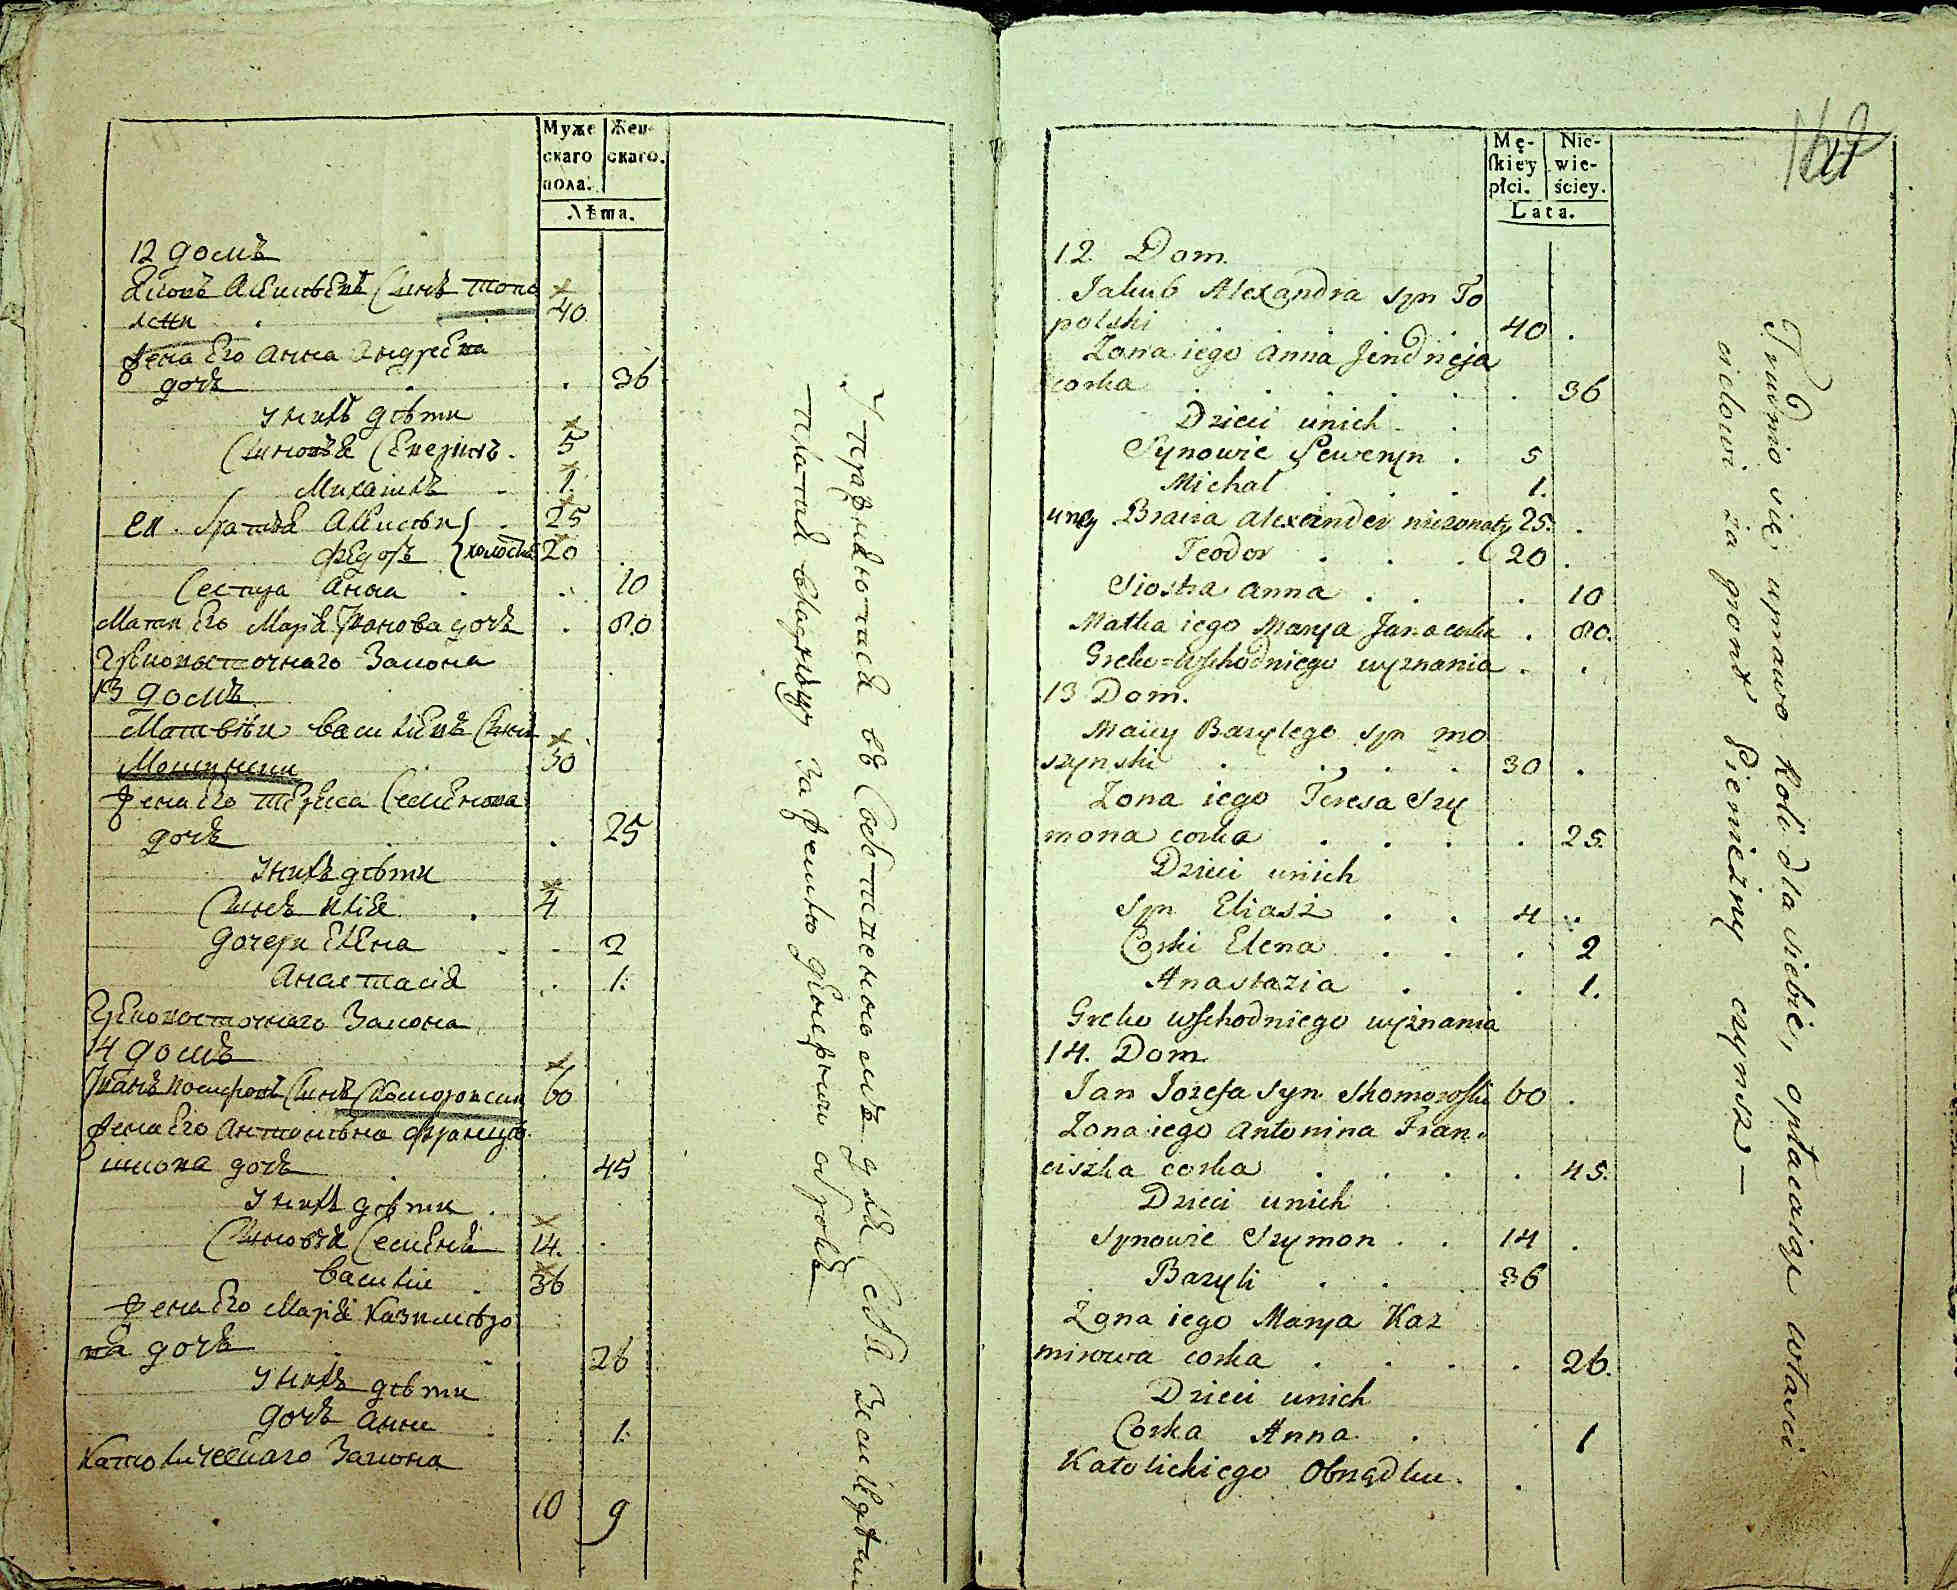 Муже
скаго
пола.
Жен-
скаго.
Лѣта.
12 домъ
сынъ Топо
лски
40
жена Его Анна Андреева
дочь
36
у нихъ дѣти
Сыновья Северинъ
5
Михаилъ
1.
братья
25
Федоръ холосты
20
Сестра Анна
10
Мати Его Марія Иванова дочь
80
Грековосточнаго Закона
13 домъ
Матвѣи Василіевъ Сынъ
Мошински
30
жена Его Тереса Семенова
дочь
25
у нихъ дѣти
Сынъ Иліа
4
дочери Елена
2
Анастасіа
1.
Грековосточнаго Закона
14 домъ
Иванъ Сынъ Скоморовски
60
жена Его Антонѣна Францѣ
шкова дочь
45
у нихъ дѣти
Сыновья Семенъ
14.
Василіи
36
жена Его Марія Казимѣро
ва дочь
26
у нихъ дѣти
дочь Анна
1.
Католическаго Закона
10 9
упражняютася въ Собственномъ для Себя Земледѣлии
платя владѣльцу за землю денежнои оброкъ
Mę-
skiey
płci.
Nie-
wie-
ściey.
Lata.
12. Dom
Jakub Alexandra syn To
polski
40
Zona iego Anna Jendrzeja
corka
36
Dzieci unich
Synowie Seweryn
5
Michał
1.
Bracia Alexander niezonaty 25.
Teodor
20
Siostra Anna
10
Matka iego Marya Jana corka
80.
Greko=wschodniego wyznania
13 Dom.
Maciey Bazylego syn Mo
szynski
30
Zona iego Teresa Szy
mona corka
25.
Dzieci unich
Syn Eliasz
4
Corki Elena
2
Anastazia
1.
Greko wschodniego wyznania
14. Dom
Jan Jozefa syn Skomorosski 60
Zona iego Antonina Fran
ciszka corka
45.
Dzieci unich
Synowie Szymon
14
Bazyli
36
Zona iego Marya Kaz
mirowa corka
26.
Dzieci unich
Corka Anna
1
Katolickiego Obrządku.
Trudnią się uprawą Roli dla siebie, opłacaiąc własci
cielowi za gront Pieniężny czynsz —